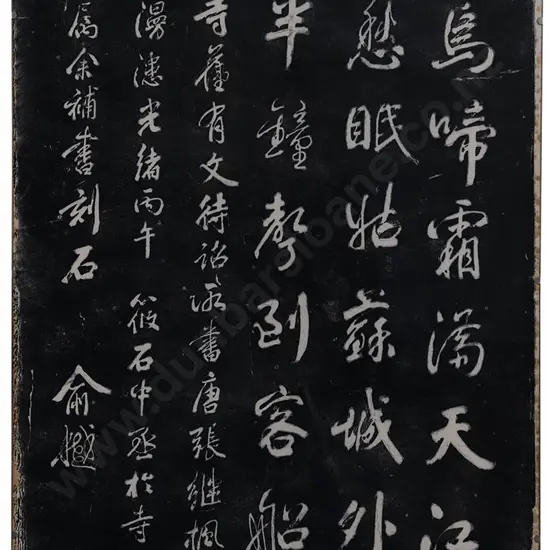 烏啼霜滿天江
愁眠姑蘇城外
半鐘聲到客船
寺舊有文待詔所書唐張繼楓
漫漶光緒丙午 筱石中丞於寺
屬余補書刻石 俞樾
www.dunbarsloane.co.nz